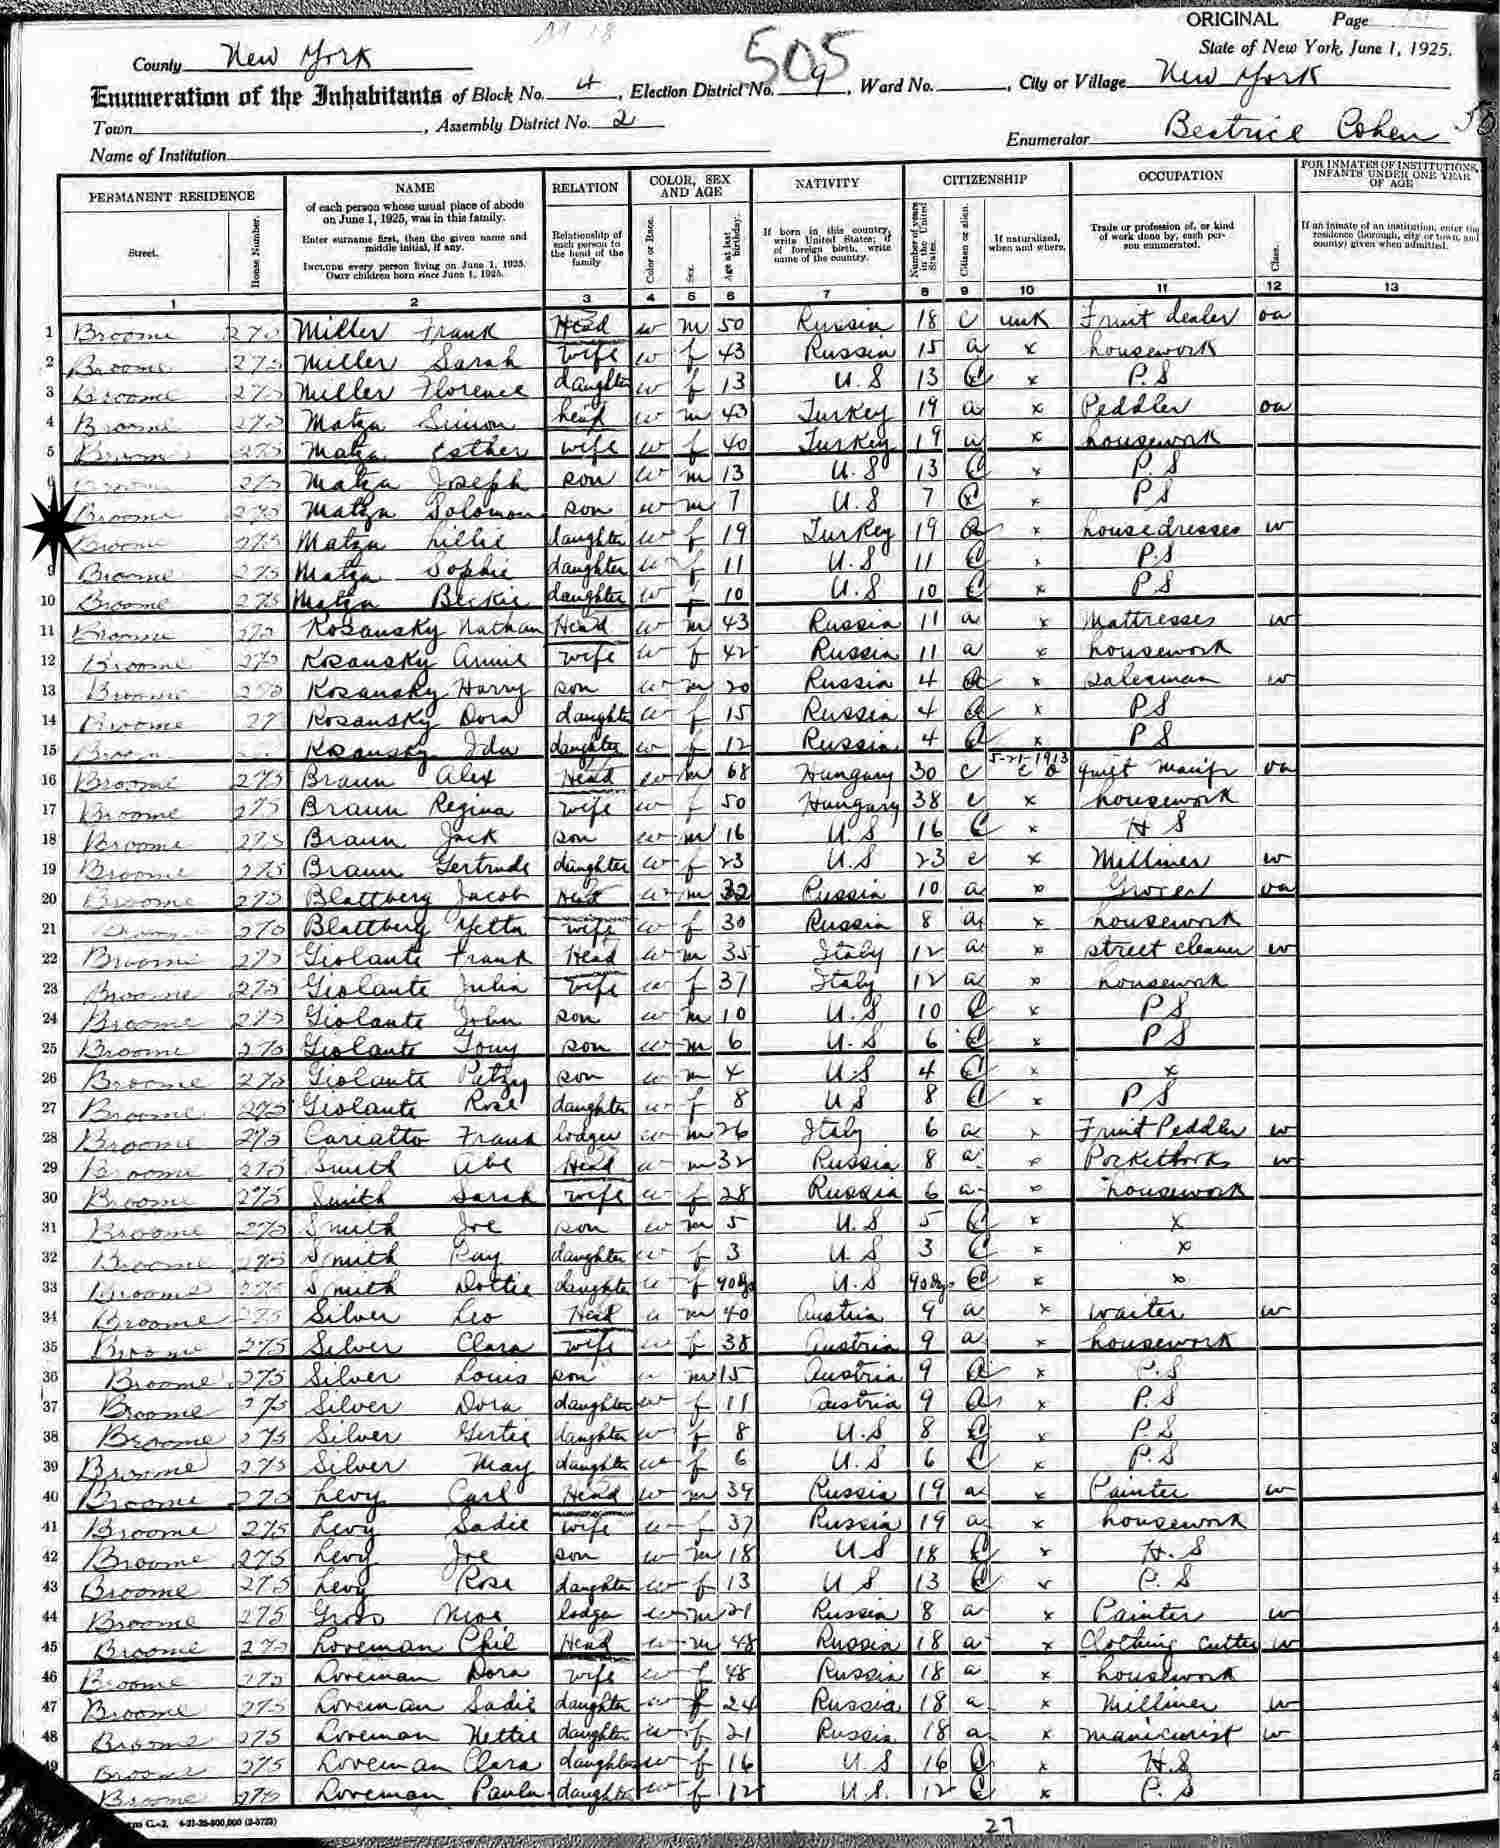 ORIGINAL Page
State of New York, June 1, 1925.
County New York
505
Enumeration of the Inhabitants of Block No. 4, Election District No. 9, Ward No. , City or Village New York
Town , Assembly District No. 2
Enumerator Beatrice Cohen
Name of Institution
PERMANENT RESIDENCE NAME RELATION COLOR, SEX AND AGE NATIVITY CITIZENSHIP OCCUPATION FOR INMATES OF INSTITUTIONS, INFANTS UNDER ONE YEAR OF AGE
Street. House Number.
of each person whose usual place of abode on June 1, 1925, was in this family.
Enter surname first, then the given name and middle initial, if any.
INCLUDE every person living on June 1, 1925. OMIT children born since June 1, 1925.
Relationship of each person to the head of the family
Color or Race. Sex. Age at last birthday.
If born in this country, write United States; if of foreign birth, write name of the country.
Number of years in the United States. Citizen or alien. If naturalized, when and where.
Trade or profession of, or kind of work done by, each person enumerated. Class.
If an inmate of an institution, enter the residence (borough, city or town, and county) given when admitted.
1 2 3 4 5 6 7 8 9 10 11 12 13
1 Broome 275 Miller Frank Head w m 50 Russia 18 c unk Fruit dealer oa
2 Broome 275 Miller Sarah wife w f 43 Russia 15 a x housework
3 Broome 275 Miller Florence daughter w f 13 U.S 13 C x P.S
4 Broome 275 Matza Simon head w m 43 Turkey 19 a x Peddler oa
5 Broome 275 Matza Esther wife w f 40 Turkey 19 a x housework
6 Broome 275 Matza Joseph son w m 13 U.S 13 C x P.S
Broome 275 Matza Solomon son w m 7 U.S 7 C x P S
Broome 275 Matza Lillie daughter w f 19 Turkey 19 a x housedresses w
9 Broome 275 Matza Sophie daughter w f 11 U.S 11 C x P.S
10 Broome 275 Matza Beckie daughter w f 10 U.S 10 C x P S
11 Broome 275 Kosansky Nathan Head w m 43 Russia 11 a x Mattresses w
12 Broome 275 Kosansky Annie wife w f 42 Russia 11 a x housework
13 Broome Kosansky Harry son w m 20 Russia 4 a x salesman w
14 Broome Kosansky Dora daughter w f 15 Russia 4 a x P S
15 Broome Kosansky Ida daughter w f 12 Russia 4 a x P S
16 Broome 275 Braun Alex Head w m 68 Hungary 30 c 5-21-1913 oa
17 Broome 275 Braun Regina wife w f 50 Hungary 38 c x housework
18 Broome 275 Braun Jack son w m 16 U.S 16 C x H S
19 Broome 275 Braun Gertrude daughter w f 23 U.S 23 c x Milliner w
20 Broome 275 Blattberg Jacob Head w m 32 Russia 10 a x Grocer oa
21 275 Blattberg Yetta wife w f 30 Russia 8 a x housework
22 Broome 275 Giolante Frank Head w m 35 Italy 12 a x street cleaner w
23 Broome 275 Giolante Julia wife w f 37 Italy 12 a x housework
24 Broome 275 Giolante John son w m 10 U.S 10 C x P S
25 Broome 275 Giolante Tony son w m 6 U.S 6 C x P S
26 Broome 275 Giolante Patzy son w m 4 U.S 4 C x x
27 Broome 275 Giolante Rose daughter w f 8 U S 8 C x P S
28 Broome 275 Carialto Frank lodger w m 26 Italy 6 a x Fruit Peddler w
29 Broome 275 Smith Abe Head w m 32 Russia 8 a x Pocketbooks w
30 Broome 275 Smith Sarah wife w f 28 Russia 6 a x housework
31 Broome 275 Smith Joe son w m 5 U.S 5 C x x
32 Broome 275 Smith Ray daughter w f 3 U S 3 C x x
33 Broome 275 Smith Dottie daughter w f U.S C x x
34 Broome 275 Silver Leo Head w m 40 Austria 9 a x waiter w
35 Broome 275 Silver Clara wife w f 38 Austria 9 a x housework
36 Broome 275 Silver Louis son w m 15 Austria 9 a x P.S
37 Broome 275 Silver Dora daughter w f 11 Austria 9 a x P.S
38 Broome 275 Silver Gertie daughter w f 8 U.S 8 C x P.S
39 Broome 275 Silver May daughter w f 6 U.S 6 C x P.S
40 Broome 275 Levy Carl Head w m 39 Russia 19 a x Painter w
41 Broome 275 Levy Sadie wife w f 37 Russia 19 a x housework
42 Broome 275 Levy Joe son w m 18 U S 18 C x H.S
43 Broome 275 Levy Rose daughter w f 13 U S 13 C x P.S
44 Broome 275 Gross Moe lodger w m 21 Russia 8 a x Painter w
45 Broome 275 Loveman Phil Head w m 48 Russia 18 a x Clothing cutter w
46 Broome 275 Loveman Dora wife w f 48 Russia 18 a x housework
47 Broome 275 Loveman Sadie daughter w f 24 Russia 18 a x Milliner w
48 Broome 275 Loveman Nettie daughter w f 21 Russia 18 a x manicurist w
49 Broome 275 Loveman Clara daughter w f 16 U.S 16 C x H.S
Broome 275 Loveman Paula daughter w f 12 U.S. 12 C x P.S
27